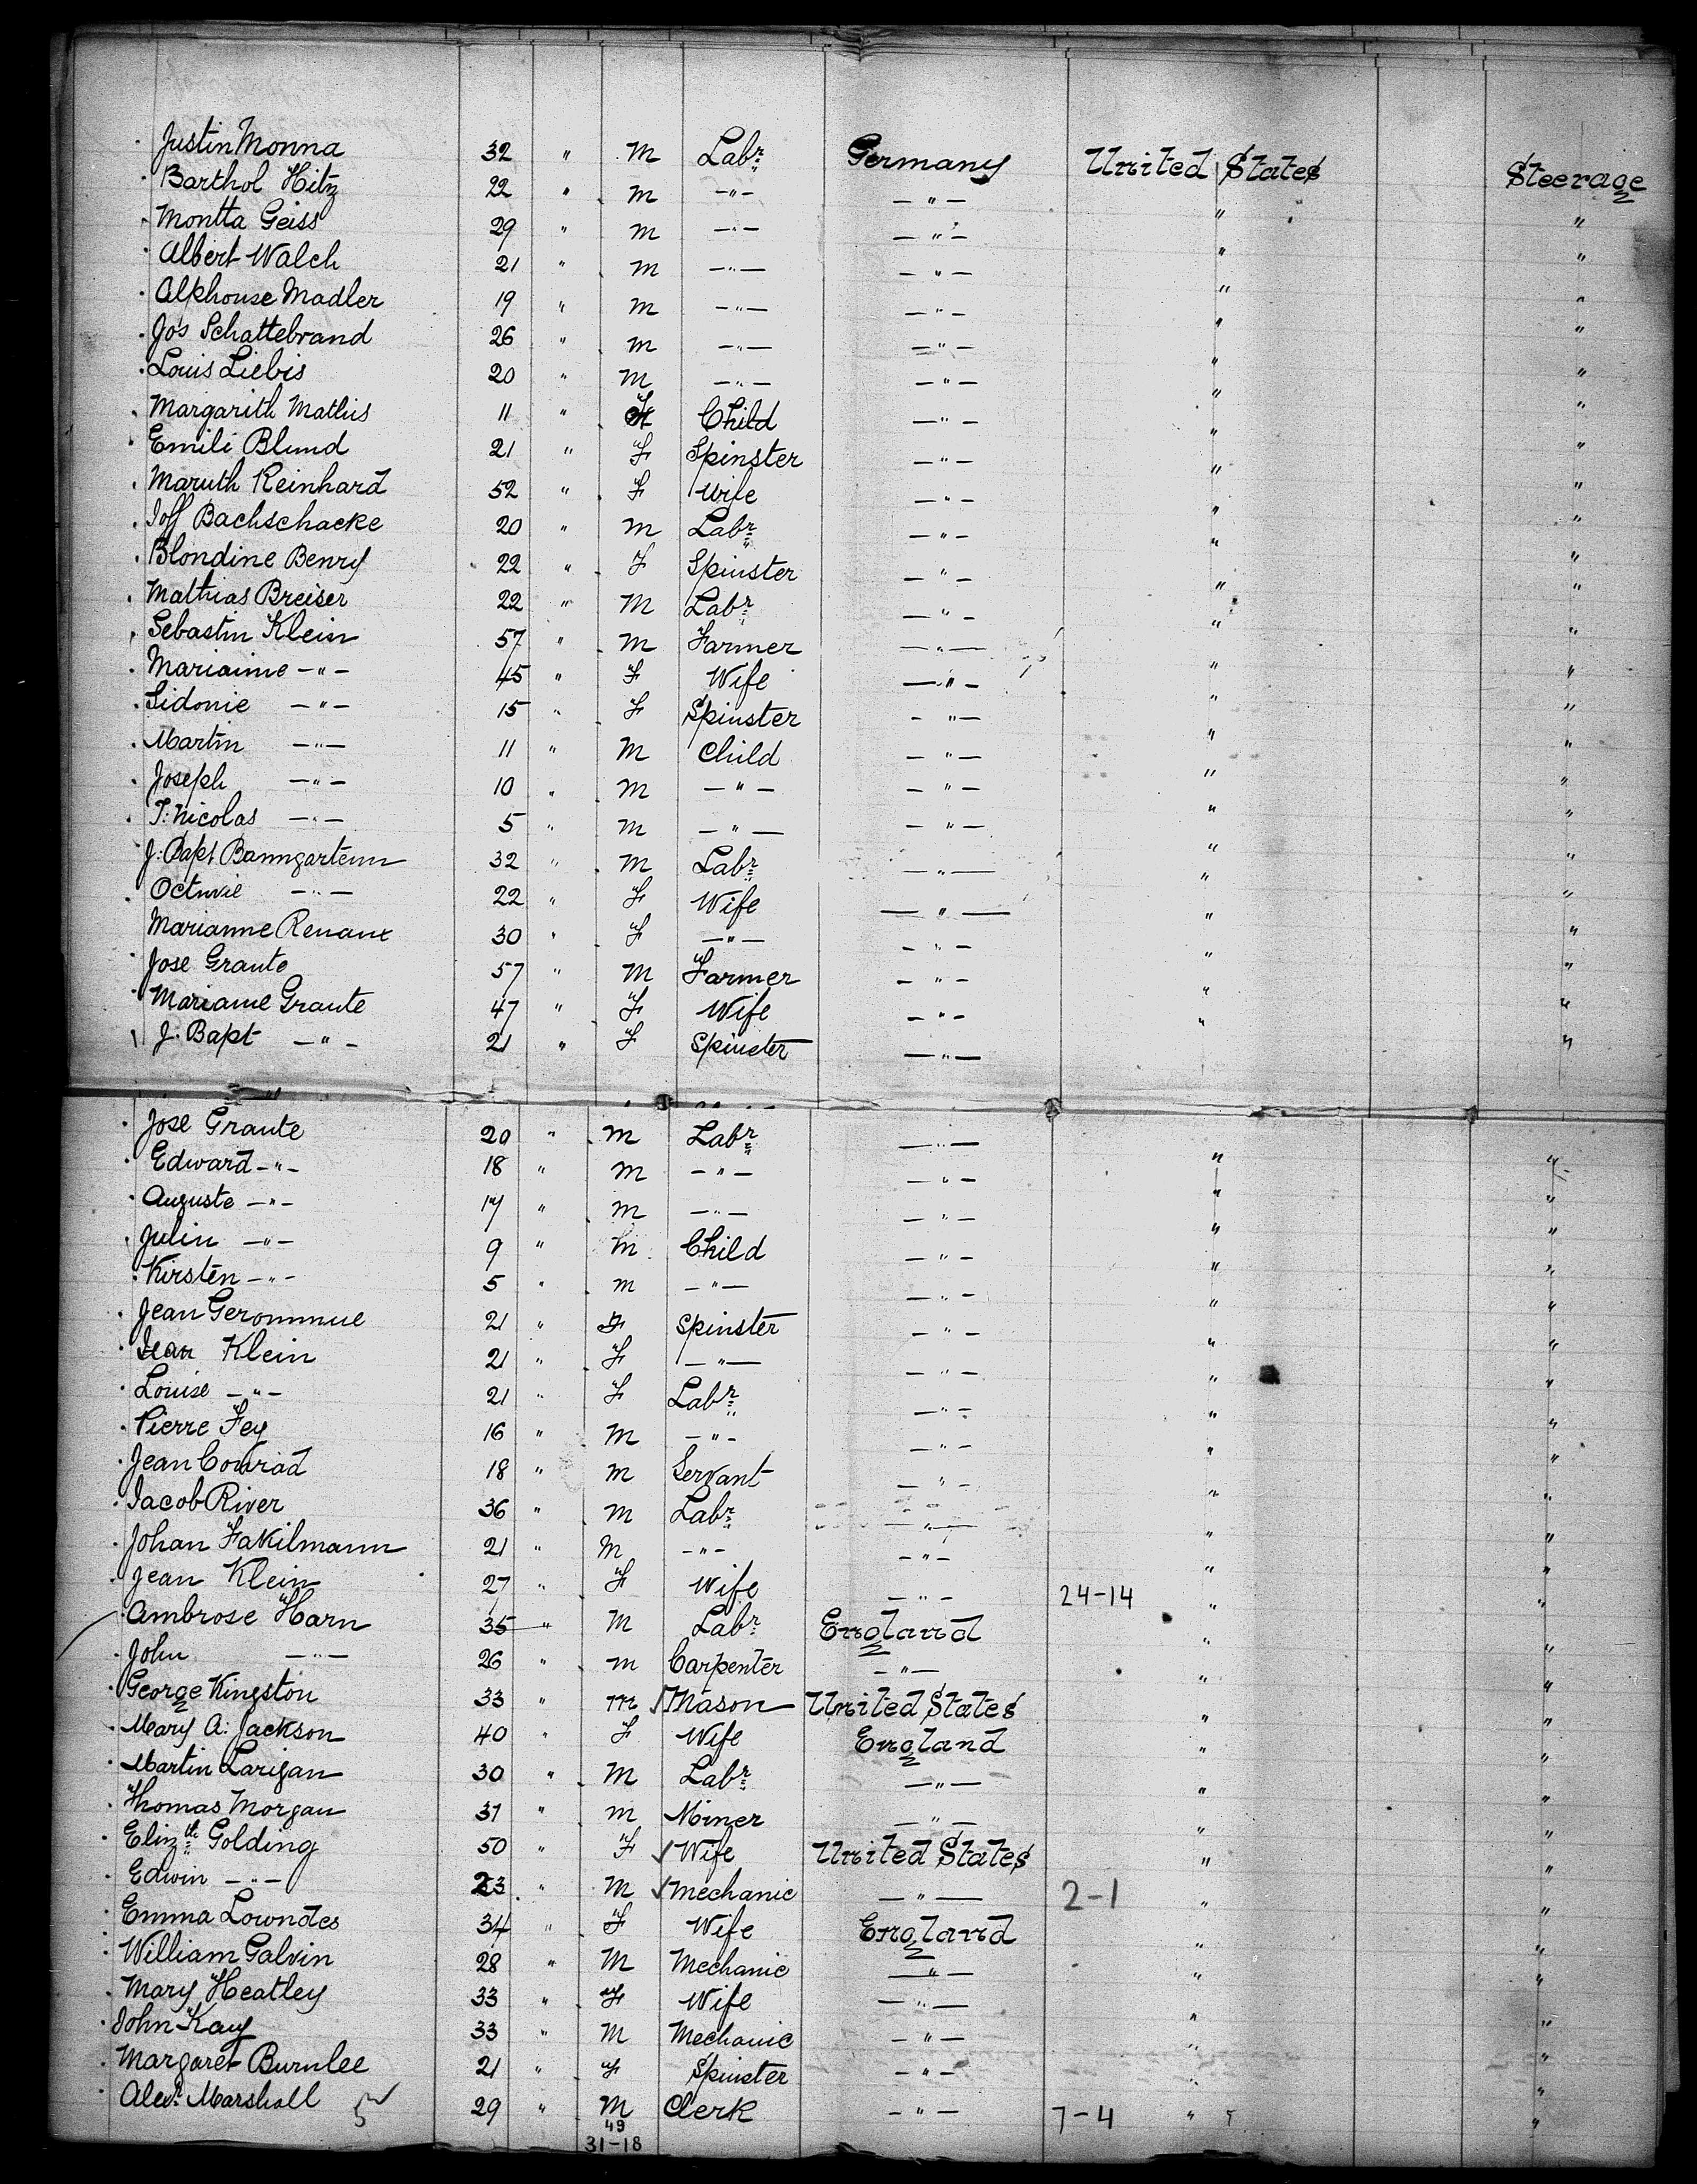 Justin Monna 32 " M Labr Germany United States Steerage
Barthol Hitz 22 " M -"- -"- " "
Montta Geiss 29 " M -"- -"- " "
Albert Walch 21 " M -"- -"- " "
Alphouse Madler 19 " M -"- -"- " "
Jos Schattebrand 26 " M -"- -"- " "
Louis Liebis 20 " M -"- -"- " "
Margarith Mathis 11 " F Child -"- " "
Emili Blund 21 " F Spinster -"- " "
Maruth Reinhard 52 " F Wife -"- " "
Joff Bachschacke 20 " M Labr -"- " "
Blondine Benry 22 " F Spinster -"- " "
Mathias Breiser 22 " M Labr -"- " "
Sebastin Klein 57 " M Farmer -"- " "
Marianne -"- 45 " F Wife -"- " "
Sidonie -"- 15 " F Spinster -"- " "
Martin -"- 11 " M Child -"- " "
Joseph -"- 10 " M -"- -"- " "
J: Nicolas -"- 5 " M -"- -"- " "
J: Bapt Banngartenn 32 " M Labr -"- " "
Octavie -"- 22 " F Wife -"- " "
Marianne Renaux 30 " F -"- -"- " "
Jose Graute 57 " M Farmer -"- " "
Mariame Graute 47 " F Wife -"- " "
J. Bapt -"- 21 " F Spinster -"- " "
Jose Graute 20 " M Labr -"- " "
Edward -"- 18 " M -"- -"- " "
Auguste -"- 17 " M -"- -"- " "
Julin -"- 9 " M Child -"- " "
Kirsten -"- 5 " M -"- -"- " "
Jean Gerommue 21 " F Spinster -"- " "
Jean Klein 21 " F -"- -"- " "
Louise -"- 21 " F Labr -"- " "
Pierre Fey 16 " M -"- -"- " "
Jean Conrad 18 " M Servant -"- " "
Jacob River 36 " M Labr -"- " "
Johan Fakilmann 21 " M -"- -"- " "
Jean Klein 27 " F Wife -"- 24-14 " "
Ambrose Harn 35 " M Labr England " "
John -"- 26 " M Carpenter -"- " "
George Kingston 33 " M √ Mason United States " "
Mary A: Jackson 40 " F Wife England " "
Martin Larigan 30 " M Labr -"- " "
Thomas Morgan 31 " M Miner -"- " "
Elizth Golding 50 " F √ Wife United States " "
Edwin -"- 23 " M √ Mechanic -"- 2-1 " "
Emma Lowndes 34 " F Wife England " "
William Galvin 28 " M Mechanic -"- " "
Mary Heatley 33 " F Wife -"- " "
John Kay 33 " M Mechanic -"- " "
Margaret Burnlee 21 " F Spinster -"- " "
Alexr Marshall 29 " M Clerk -"- 7-4 " "
49
31-18